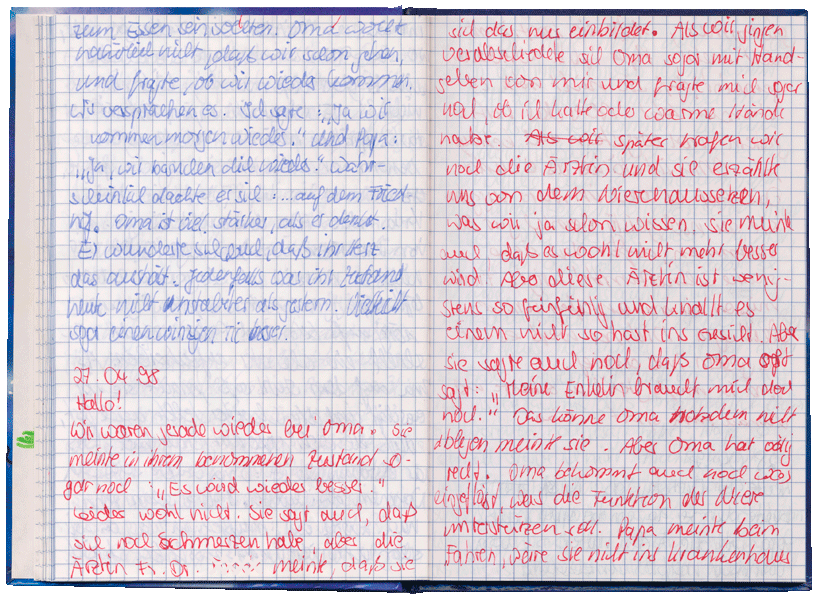 zum Essen sein sollten. Oma wollte
natürlich nicht, daß wir schon gehen,
und fragte, ob wir wieder kommen.
Wir versprachen es. Ich sagte: „Ja wir
kommen morgen wieder." Und Papa:
„Ja, wir besuchen dich wieder." Wahr-
scheinlich dachte er sich: ...auf dem Fried-
hof. Oma ist viel stärker, als er denkt.
Er wunderte sich auch, daß ihr Herz
das aushält. Jedenfalls war ihr Zustand
heute nicht als gestern. Vielleicht
sogar einen winzigen Tic besser.
27.04.98
Hallo!
Wir waren gerade wieder bei Oma. Sie
meinte in ihrem benommenen Zustand so-
gar noch: „Es wird wieder besser."
Leider wohl nicht. Sie sagt auch, daß
sie noch Schmerzen habe, aber die
Ärztin Fr. Dr. ..... meinte, daß sie
sich das nur einbildet. Als wir gingen
verabschiedete sich Oma sogar mit Hand-
geben von mir und fragte mich sogar
noch, ob ich kalte oder warme Hände
hatte. Als wir später trafen wir
noch die Ärztin und sie erzählte
uns von dem Nierenaussetzen,
was wir ja schon wissen. Sie meinte
auch daß es wohl nicht mehr besser
wird. Aber diese Ärztin ist wenig-
stens so feinfühlig und knallt es
einem nicht so hart ins Gesicht. Aber
sie sagte auch noch, daß Oma oft
sagt: „Meine Enkelin braucht mich doch
noch." Das könne Oma trotzdem nicht
ablegen meinte sie. Aber Oma hat völlig
recht. Oma bekommt auch noch was
eingeflößt, was die Funktion der Niere
unterstützen soll. Papa meinte beim
Fahren, wäre sie nicht ins Krankenhaus